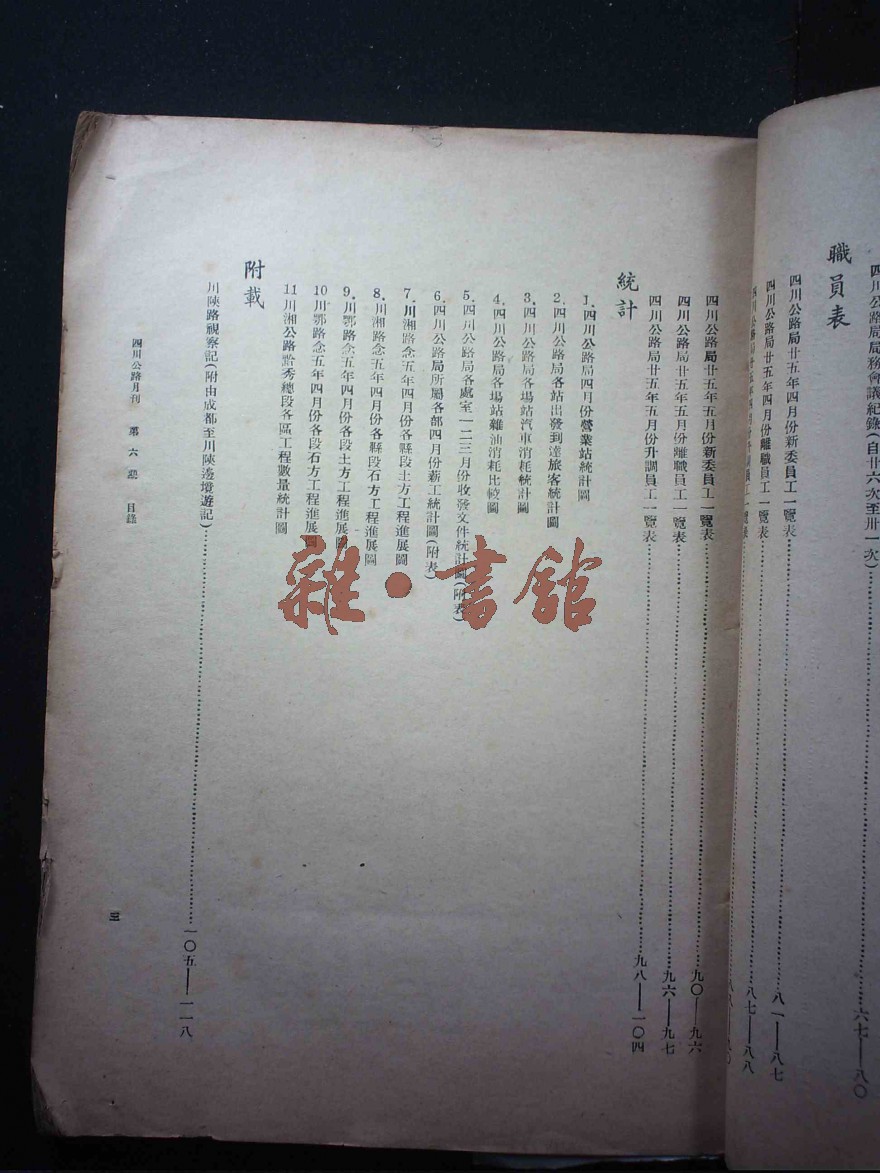 四川公路局局務會議紀錄(自廿六次至卅一次)……六七——八〇
職員表
四川公路局廿五年四月份新委員工一覽表……八一——八七
四川公路局廿五年四月份離職員工一覽表……八七——八八
四川公路局廿五年四月份升調員工一覽表
四川公路局廿五年五月份新委員工一覽表……九〇——九六
四川公路局廿五年五月份離職員工一覽表……九六——九七
四川公路局廿五年五月份升調員工一覽表……九八——一〇四
統計
1.四川公路局四月份營業站統計圖
2.四川公路局各站出發到達旅客統計圖
3.四川公路局各場站汽車消耗統計圖
4.四川公路局各場站雜油消耗比較圖
5.四川公路局各處室一二三月份收發文件統計圖(附表)
6.四川公路局所屬各部四月份薪工統計圖(附表)
7.川湘路念五年四月份各縣段土方工程進展圖
8.川湘路念五年四月份各縣段石方工程進展圖
9.川鄂路念五年四月份各段土方工程進展圖
10川鄂路念五年四月份各段石方工程進展圖
11川湘公路黔秀總段各區工程數量統計圖
附載
川陝路視察記(附由成都至川陝邊境遊記)……一〇五——一一八
四川公路月刊 第六期 目錄
三
雜·書館